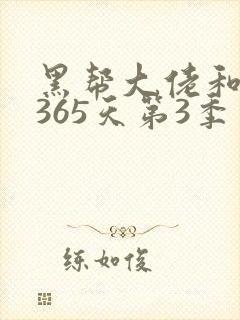 黑帮大佬和
365天第3季
练如俊